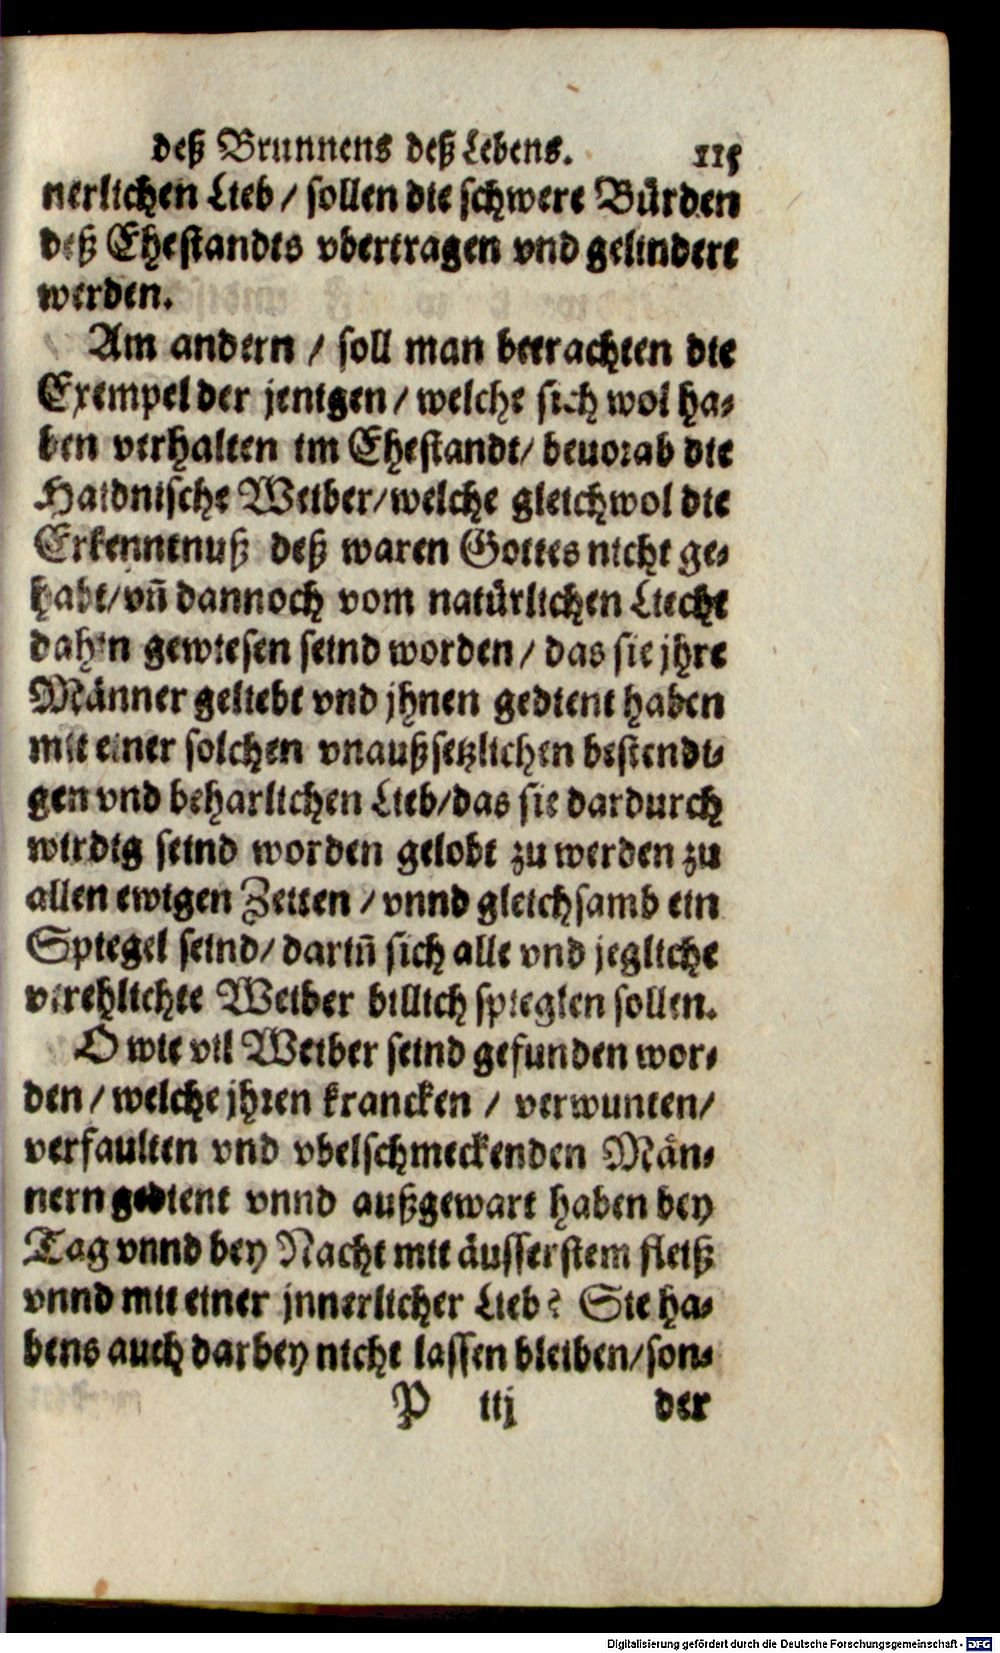 deß Brunnens deß Lebens. 115
nerlichen Lieb / sollen die schwere Bürden
deß Ehestandts vbertragen vnd gelindert
werden.
Am andern / soll man betrachten die
Exempel der jenigen / welche sich wol ha-
ben verhalten im Ehestandt / beuorab die
Haidnische Weiber / welche gleichwol die
Erkenntnuß deß waren Gottes nicht ge-
habt / vñ dannoch vom natürlichen Liecht
dahin gewiesen seind worden / das sie jhre
Männer geliebt vnd jhnen gedient haben
mit einer solchen vnaußsetzlichen bestendi-
gen vnd beharlichen Lieb / das sie dardurch
wirdig seind worden gelobt zu werden zu
allen ewigen Zeiten / vnnd gleichsamb ein
Spiegel seind / dariñ sich alle vnd jegliche
verehlichte Weiber billich spieglen sollen.
O wie vil Weiber seind gefunden wor-
den / welche jhren krancken / verwunten /
verfaulten vnd vbelschmeckenden Män-
nern gedient vnnd außgewart haben bey
Tag vnnd bey Nacht mit äusserstem fleiß
vnnd mit einer jnnerlicher Lieb? Sie ha-
bens auch darbey nicht lassen bleiben / son-
P iij der
Digitalisierung gefördert durch die Deutsche Forschungsgemeinschaft - DFG